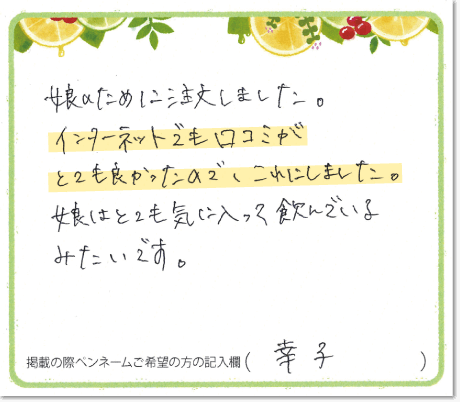 娘のために注文しました。
インターネットでも口コミが
とても良かったので、これにしました。
娘はとても気に入って飲んでいる
みたいです。
掲載の際ペンネームご希望の方の記入欄(幸子)